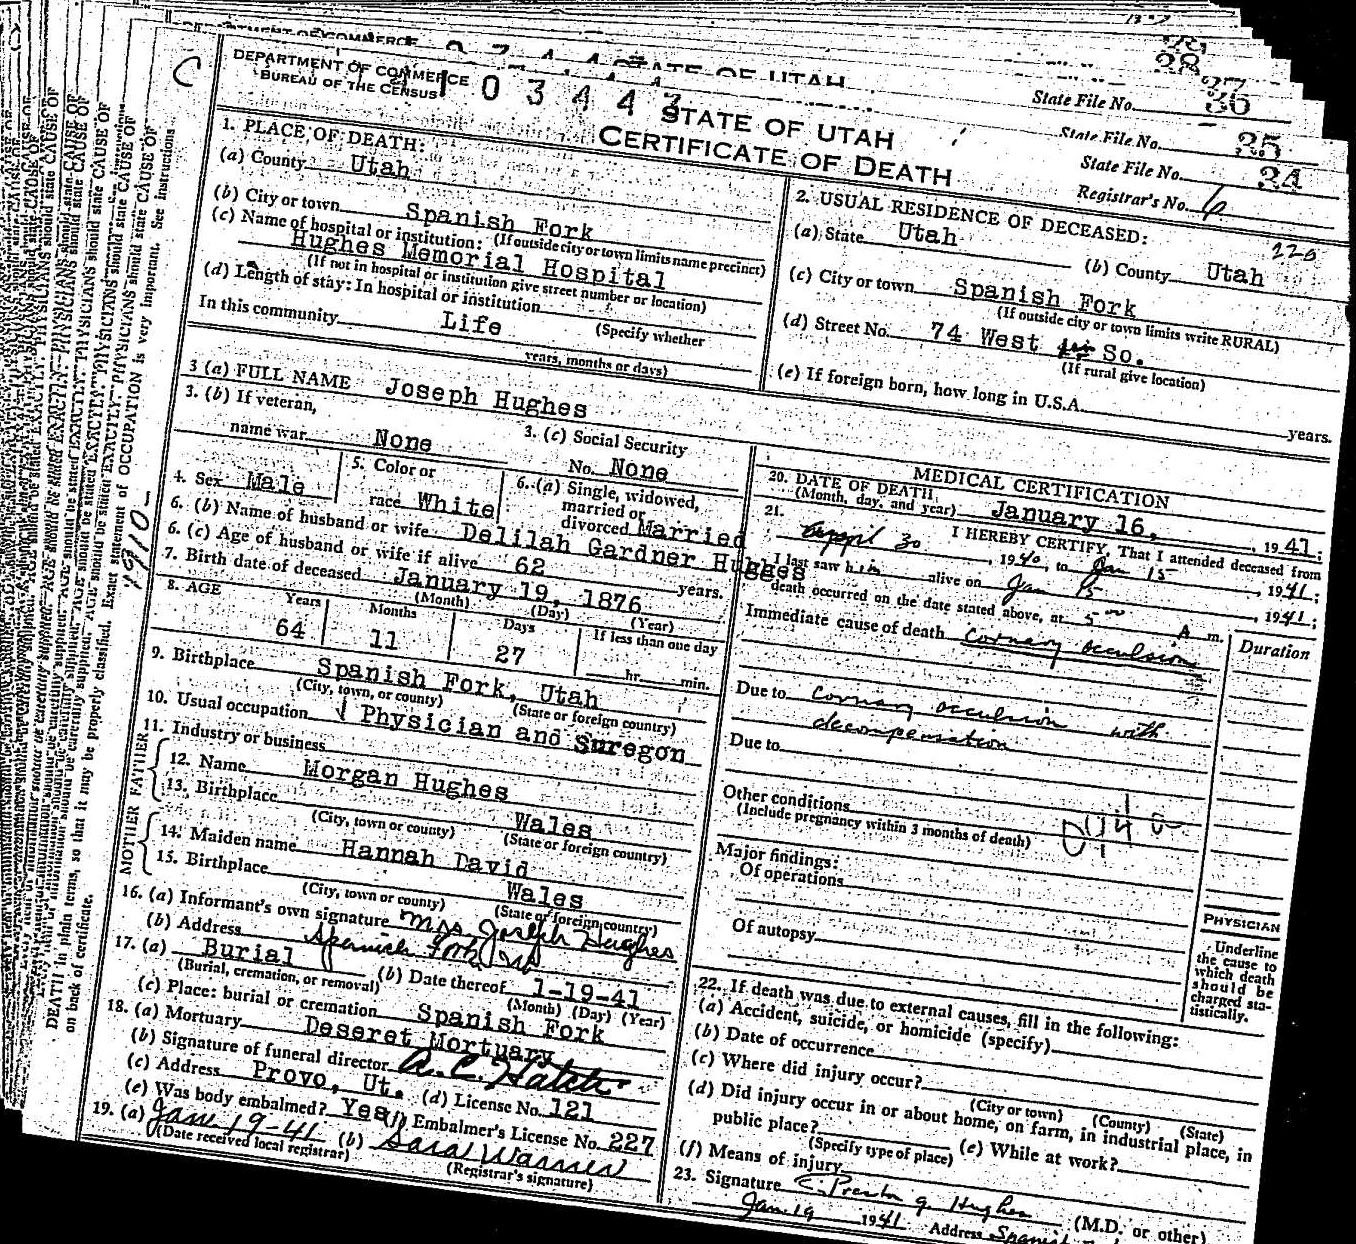 C
DEPARTMENT OF COMMERCE
BUREAU OF THE CENSUS
103443
STATE OF UTAH
CERTIFICATE OF DEATH
State File No. 36
State File No. 35
State File No. 34
Registrar's No. 6
220
1. PLACE OF DEATH:
(a) County Utah
(b) City or town Spanish Fork
(If outside city or town limits name precinct)
(c) Name of hospital or institution:
Hughes Memorial Hospital
(If not in hospital or institution give street number or location)
(d) Length of stay: In hospital or institution
(Specify whether
In this community Life
years, months or days)
2. USUAL RESIDENCE OF DECEASED:
(a) State Utah (b) County Utah
(c) City or town Spanish Fork
(If outside city or town limits write RURAL)
(d) Street No. 74 West So.
(If rural give location)
(e) If foreign born, how long in U.S.A. years.
3 (a) FULL NAME Joseph Hughes
3. (b) If veteran,
name war None
3. (c) Social Security
No. None
4. Sex Male
5. Color or
race White
6. (a) Single, widowed,
married or
divorced Married
6. (b) Name of husband or wife Delilah Gardner Hughes
6. (c) Age of husband or wife if alive 62 years.
7. Birth date of deceased January 19, 1876
(Month) (Day) (Year)
8. AGE Years Months Days If less than one day
64 11 27 hr. min.
9. Birthplace Spanish Fork, Utah
(City, town, or county) (State or foreign country)
10. Usual occupation Physician and Suregon
11. Industry or business
FATHER
12. Name Morgan Hughes
13. Birthplace Wales
(City, town or county) (State or foreign country)
MOTHER
14. Maiden name Hannah David
15. Birthplace Wales
(City, town or county) (State or foreign country)
16. (a) Informant's own signature Mrs. Joseph Hughes
(b) Address Spanish Fork, Ut
17. (a) Burial (b) Date thereof 1-19-41
(Burial, cremation, or removal) (Month) (Day) (Year)
(c) Place: burial or cremation Spanish Fork
18. (a) Mortuary Deseret Mortuary
(b) Signature of funeral director A. C. Hatch
(c) Address Provo, Ut. (d) License No. 121
(e) Was body embalmed? Yes (f) Embalmer's License No. 227
19. (a) Jan 19-41 (b) Sara Warner
(Date received local registrar) (Registrar's signature)
MEDICAL CERTIFICATION
20. DATE OF DEATH
(Month, day, and year) January 16, 1941;
21. I HEREBY CERTIFY, That I attended deceased from
April 30, 1940, to Jan 15, 1941;
I last saw him alive on Jan 15, 1941;
death occurred on the date stated above, at 5 00 A m.
Immediate cause of death Duration
Cornary occulsion
Due to Cornary occulsion with
decompensation
Due to
Other conditions
(Include pregnancy within 3 months of death)
Major findings:
Of operations
Of autopsy
PHYSICIAN
Underline
the cause to
which death
should be
charged sta-
tistically.
22. If death was due to external causes, fill in the following:
(a) Accident, suicide, or homicide (specify)
(b) Date of occurrence
(c) Where did injury occur?
(City or town) (County) (State)
(d) Did injury occur in or about home, on farm, in industrial place, in
public place?
(Specify type of place) (e) While at work?
(f) Means of injury
23. Signature Preston G. Hughes (M.D. or other)
Jan 19 1941 Address
DEATH in plain terms, so that it may be properly classified. Exact statement of OCCUPATION is very important. See instructions
on back of certificate.
1910-